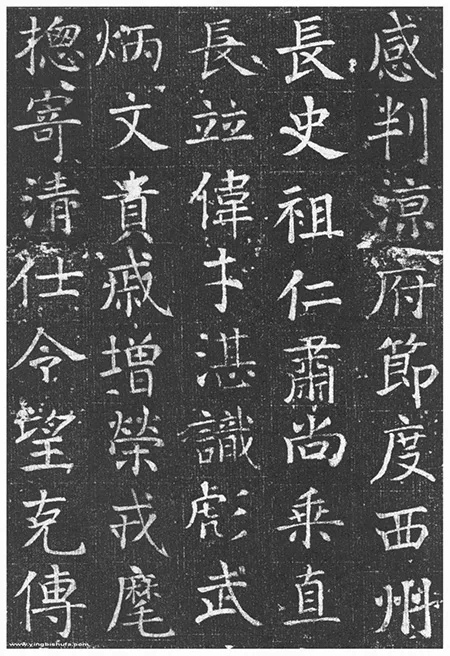 感判涼府節度西州
長史祖仁肅尚乗直
長並偉才湛識彪武
炳文貴戚増榮戎麾
揔寄清仕令望克傳
www.yingbishufa.com